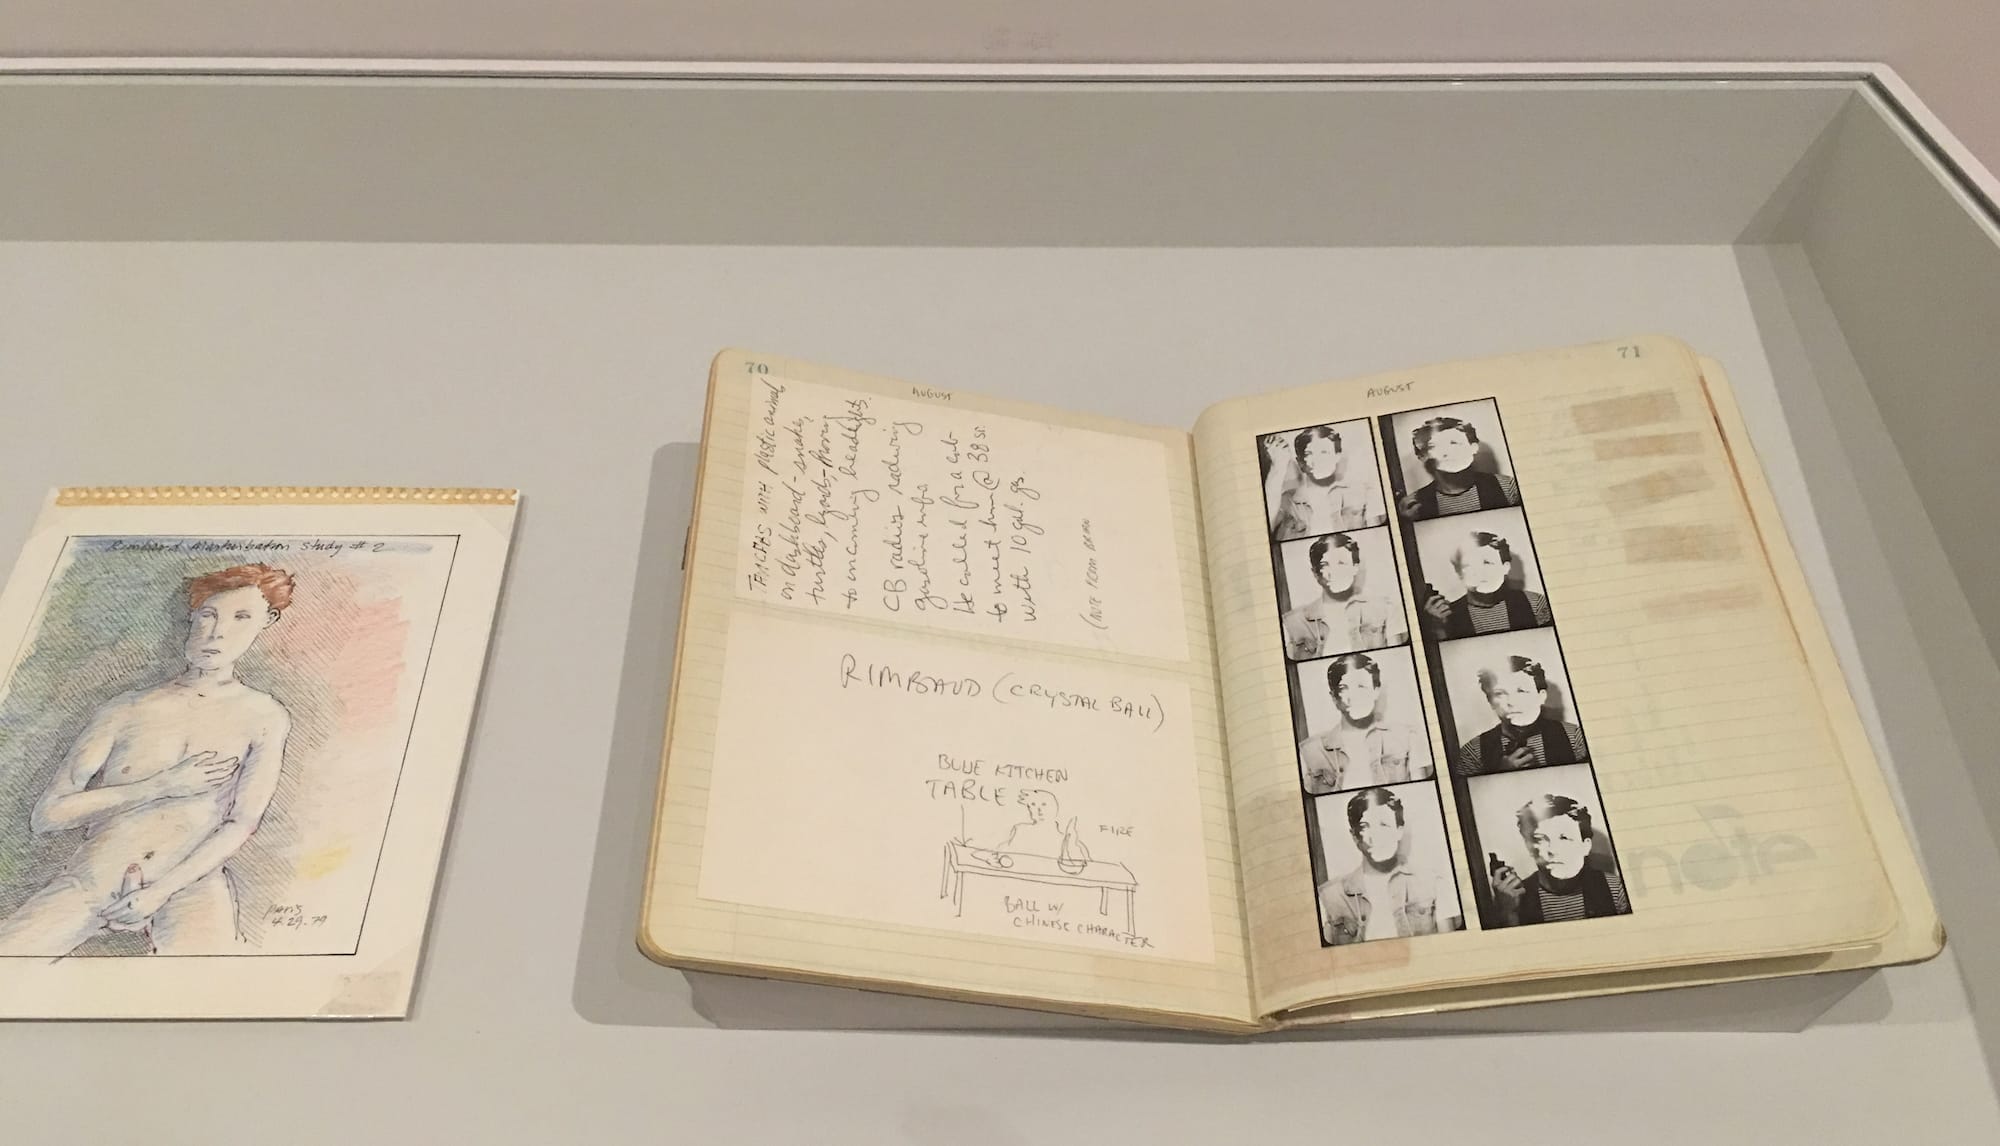 Rimbaud Masturbation Study #2
Paris
4.29.79
70
AUGUST
TRUCKERS WITH plastic animals
on dashboard - snakes,
turtles, lizards,
to oncoming headlights.
CB radios radioing
gasoline info.
He called for a cab
to meet him @ 38 st.
with 10 gal. gas
(NOTE FROM BRIAN
RIMBAUD (CRYSTAL BALL)
BLUE KITCHEN
TABLE
FIRE
BALL W/
CHINESE CHARACTER
71
AUGUST
note